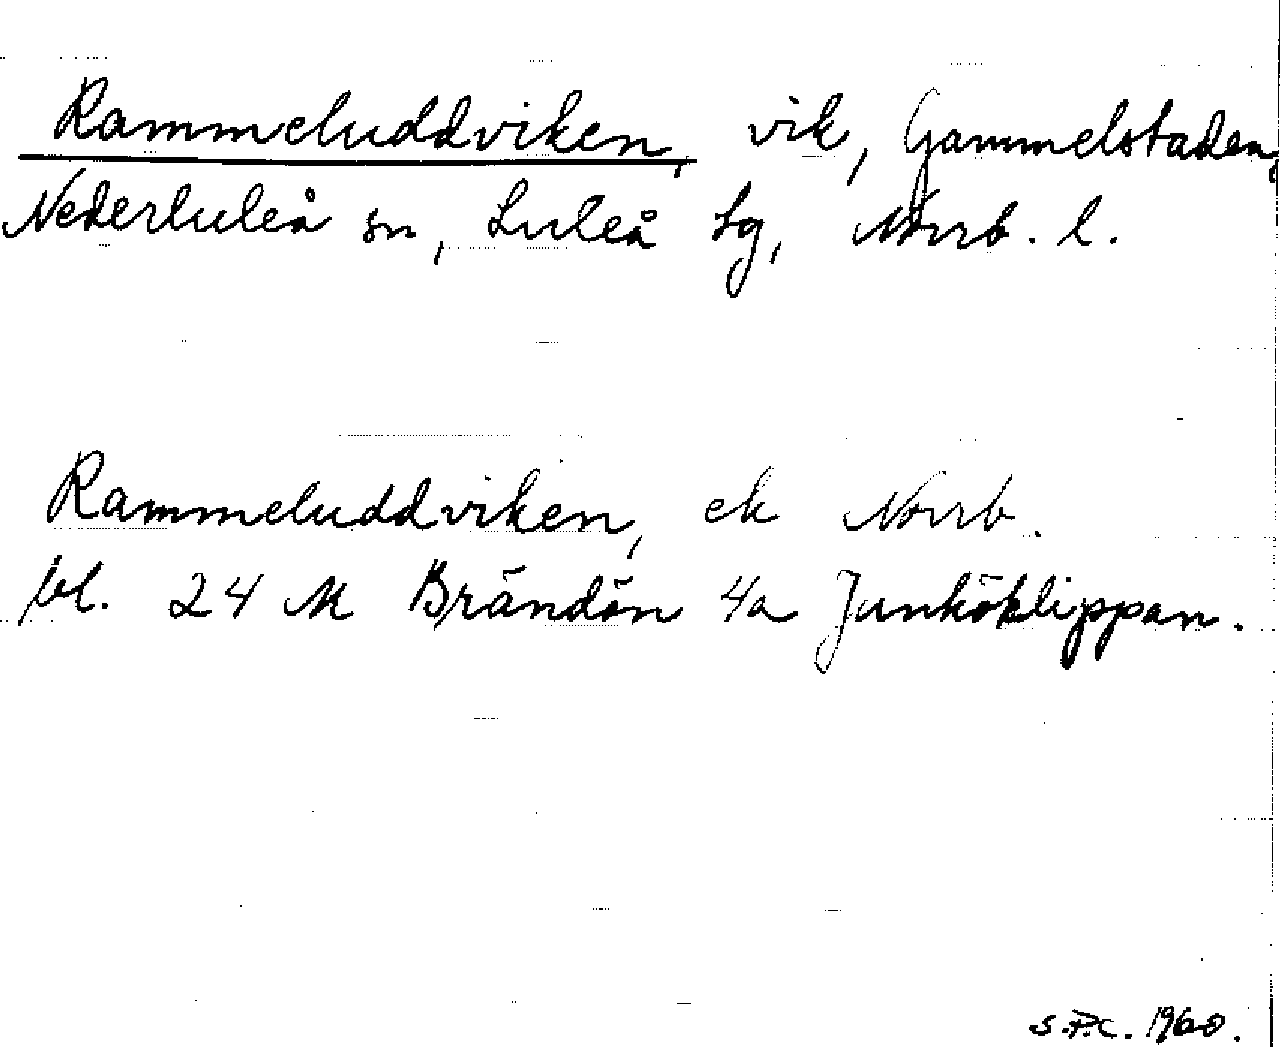 Rammeluddviken, vik, Gammelstaden,
Nederluleå sn, Luleå tg, Norrb. l.
Rammeluddviken, ek Norrb.
bl. 24 M Brändön 4a Junköklippan.
S.P.C. 1960.